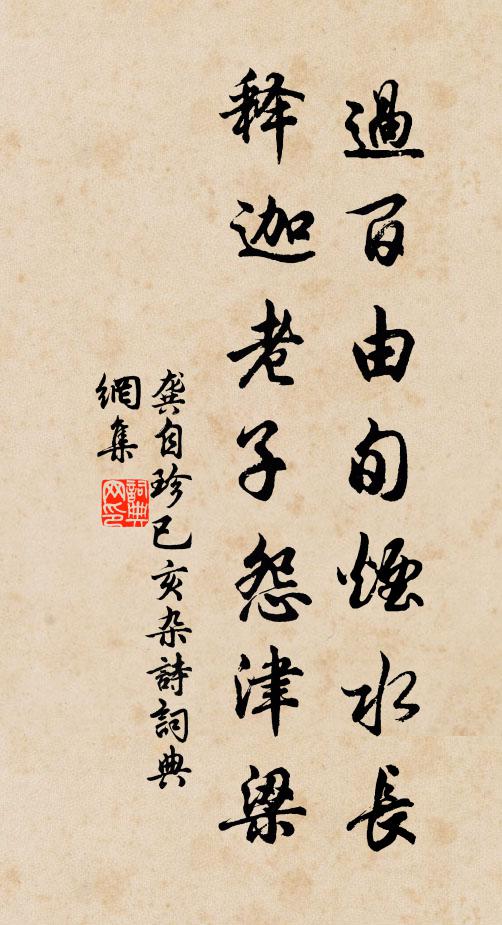 過百由旬煙水長
釋迦老子怨津梁
龔自珍己亥杂詩詞典
網集
詞典
网印